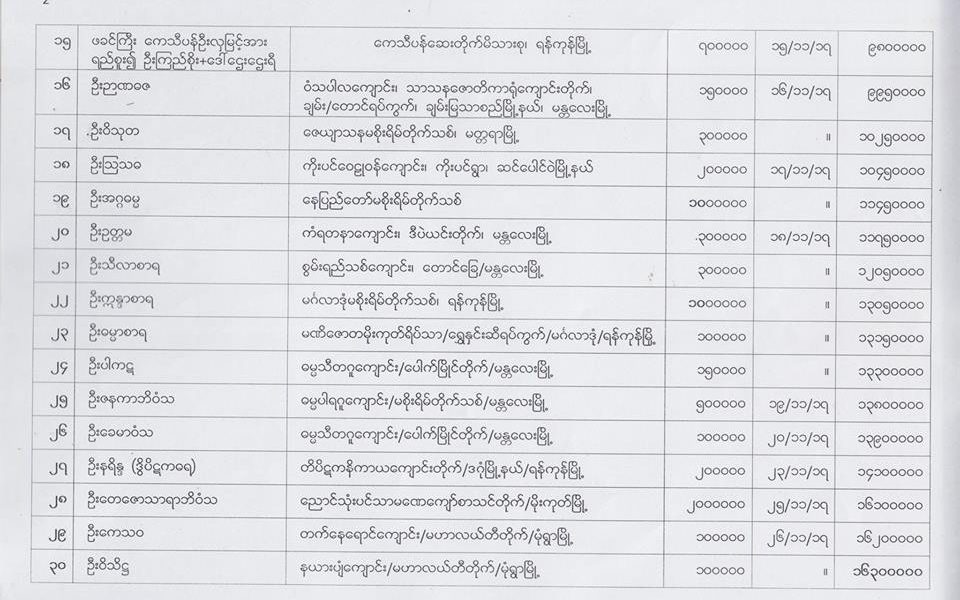 ၂
၁၅ ဖခင်ကြီး ကေသီပန်ဦးလှမြင့်အား ကေသီပန်ဆေးတိုက်မိသားစု၊ ရန်ကုန်မြို့ ၇၀၀၀၀၀ ၁၅/၁၁/၁၇ ၉၈၀၀၀၀၀
ရည်စူး၍ ဦးကြည်စိုး+ဒေါ်ဌေးဌေးရီ
၁၆ ဦးဉာဏဓဇ ဝံသပါလကျောင်း၊ သာသနဇောတိကာရုံကျောင်းတိုက်၊ ၁၅၀၀၀၀ ၁၆/၁၁/၁၇ ၉၉၅၀၀၀၀
ချမ်း/တောင်ရပ်ကွက်၊ ချမ်းမြသာစည်မြို့နယ်၊ မန္တလေးမြို့
၁၇ ဦးဝိသုတ ဇေယျာသနမစိုးရိမ်တိုက်သစ်၊ မတ္တရာမြို့ ၃၀၀၀၀၀ ။ ၁၀၂၅၀၀၀၀
၁၈ ဦးဩသဓ ကိုးပင်ဝေဠုဝန်ကျောင်း၊ ကိုးပင်ရွာ၊ ဆင်ပေါင်ဝဲမြို့နယ် ၂၀၀၀၀၀ ၁၇/၁၁/၁၇ ၁၀၄၅၀၀၀၀
၁၉ ဦးအဂ္ဂဓမ္မ နေပြည်တော်မစိုးရိမ်တိုက်သစ် ၁၀၀၀၀၀၀ ။ ၁၁၄၅၀၀၀၀
၂၀ ဦးဥတ္တမ ကံရတနာကျောင်း၊ ဒီပဲယင်းတိုက်၊ မန္တလေးမြို့ ၃၀၀၀၀၀ ၁၈/၁၁/၁၇ ၁၁၇၅၀၀၀၀
၂၁ ဦးသီလာစာရ စွမ်းရည်သစ်ကျောင်း၊ တောင်ခြေ/မန္တလေးမြို့ ၃၀၀၀၀၀ ။ ၁၂၀၅၀၀၀၀
၂၂ ဦးဣန္ဒာစာရ မင်္ဂလာဒုံမစိုးရိမ်တိုက်သစ်၊ ရန်ကုန်မြို့ ၁၀၀၀၀၀၀ ။ ၁၃၀၅၀၀၀၀
၂၃ ဦးဓမ္မာစာရ မဏိဇောတမိုးကုတ်ရိပ်သာ/ရွှေနှင်းဆီရပ်ကွက်/မင်္ဂလာဒုံ/ရန်ကုန်မြို့ ၁၀၀၀၀၀ ။ ၁၃၁၅၀၀၀၀
၂၄ ဦးပါကဋ ဓမ္မသီတဂူကျောင်း/ပေါက်မြိုင်တိုက်/မန္တလေးမြို့ ၁၅၀၀၀၀ ။ ၁၃၃၀၀၀၀၀
၂၅ ဦးဇနကာဘိဝံသ ဓမ္မပါရဂူကျောင်း/မစိုးရိမ်တိုက်သစ်/မန္တလေးမြို့ ၅၀၀၀၀၀ ၁၉/၁၁/၁၇ ၁၃၈၀၀၀၀၀
၂၆ ဦးခေမာဝံသ ဓမ္မသီတဂူကျောင်း/ပေါက်မြိုင်တိုက်/မန္တလေးမြို့ ၁၀၀၀၀၀ ၂၀/၁၁/၁၇ ၁၃၉၀၀၀၀၀
၂၇ ဦးနရိန္ဒ (ဒွိပိဋကဓရ) တိပိဋကနိကာယကျောင်းတိုက်/ဒဂုံမြို့နယ်/ရန်ကုန်မြို့ ၂၀၀၀၀၀ ၂၃/၁၁/၁၇ ၁၄၁၀၀၀၀၀
၂၈ ဦးတေဇောသာရာဘိဝံသ ညောင်သုံးပင်သာမဏေကျော်စာသင်တိုက်/မိုးကုတ်မြို့ ၂၀၀၀၀၀၀ ၂၅/၁၁/၁၇ ၁၆၁၀၀၀၀၀
၂၉ ဦးကေသဝ တက်နေရောင်ကျောင်း/မဟာလယ်တီတိုက်/မုံရွာမြို့ ၁၀၀၀၀၀ ၂၆/၁၁/၁၇ ၁၆၂၀၀၀၀၀
၃၀ ဦးဝိသိဋ္ဌ နယားပျံကျောင်း/မဟာလယ်တီတိုက်/မုံရွာမြို့ ၁၀၀၀၀၀ ။ ၁၆၃၀၀၀၀၀